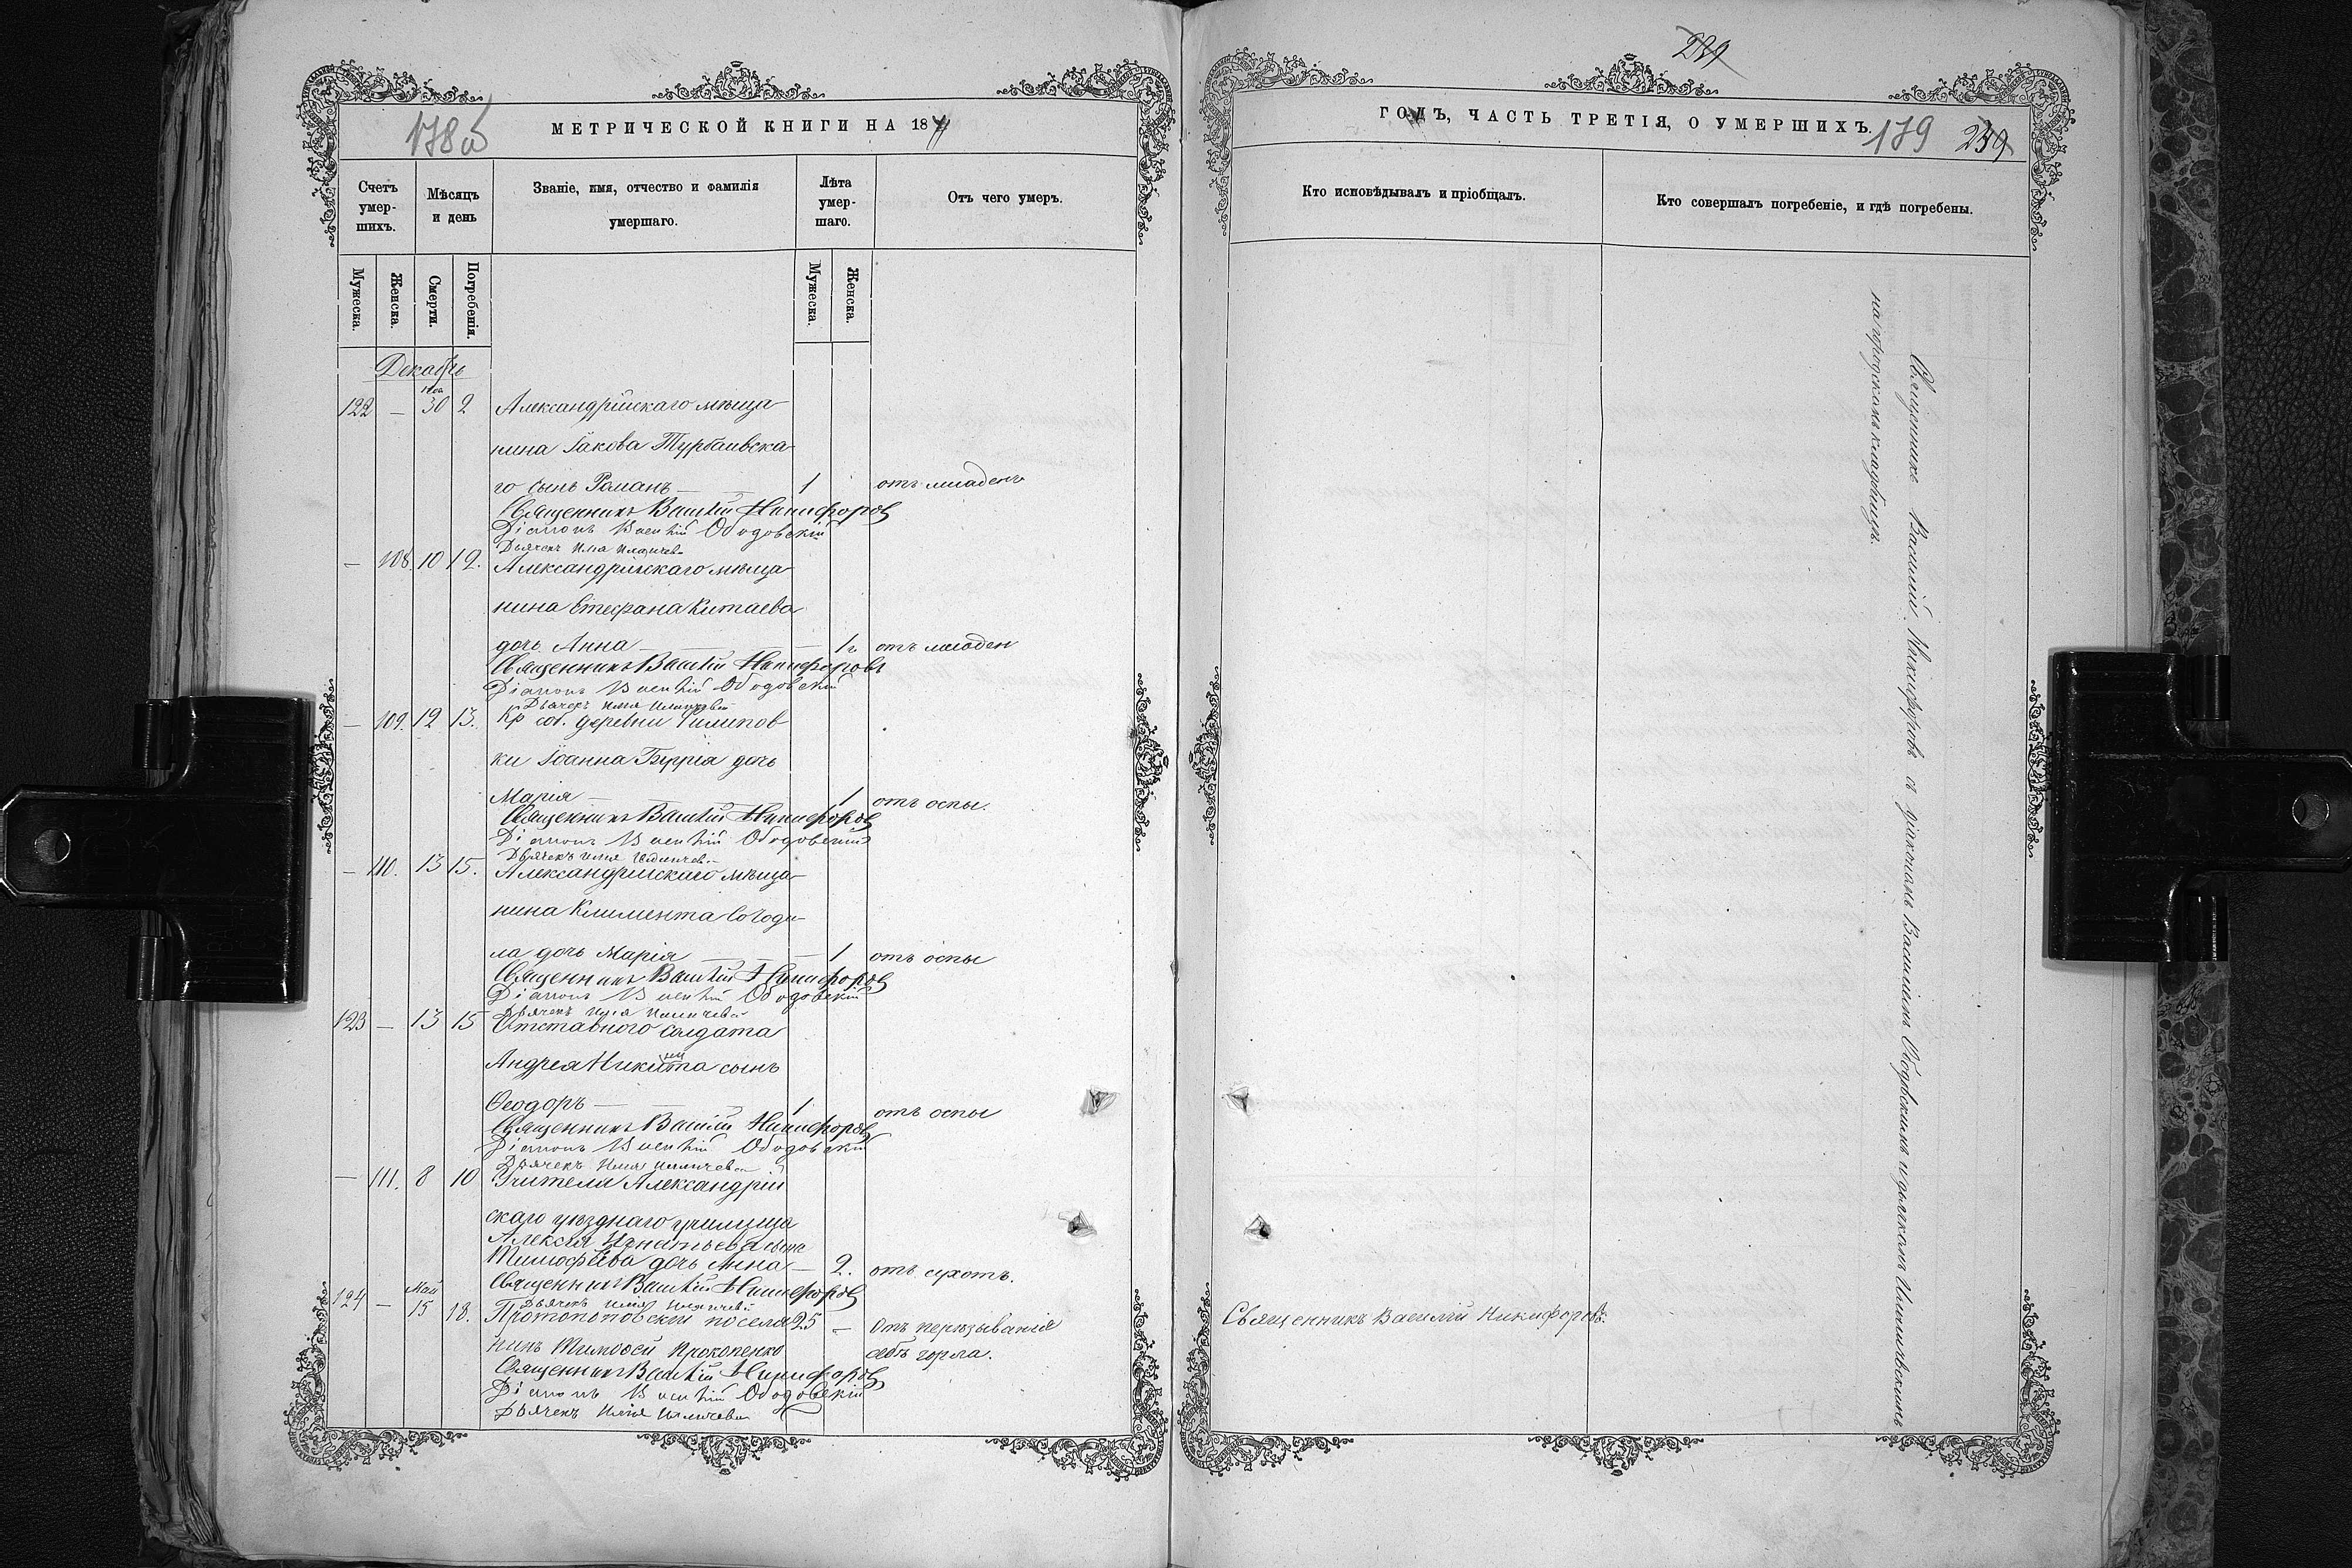 178 об
МЕТРИЧЕСКОЙ КНИГИ НА 187
Счетъ умер-шихъ.
Мѣсяцъ и день
Званіе, имя, отчество и фамилія умершаго.
Лѣта умер-шаго.
Отъ чего умеръ.
Мужеска.
Женска.
Смерти.
Погребенія.
Мужеска.
Женска.
Декабрь
Ноя
122 — 30 2 Александрійскаго мѣща-
нина Іакова Турбаивска-
го сынъ Романъ — — 1 отъ младен
Священникъ Василій Никифоровъ
Діаконъ Василій Ободовскій
Дьячекъ Илія
— 108. 10 12. Александрійскаго мѣща-
нина Стефана Китаева
дочь Анна — — 1 г. отъ младен
Священникъ Василій Никифоровъ
Діаконъ Василій Ободовскій
Дьячекъ Илія
— 109. 12 13. Кр соб. деревни Филипов-
ки Іоанна Гуррія дочь
Марія — — 1 отъ оспы.
Священникъ Василій Никифоровъ
Діаконъ Василій Ободовскій
Дьячекъ Илія
— 110. 13 15. Александрійскаго мѣща-
нина Климента
ла дочь Марія — — 1 отъ оспы
Священникъ Василій Никифоровъ
Діаконъ Василій Ободовскій
Дьячекъ Илія
123 — 13 15 Отставного солдата
Андрея Никитина сынъ
Ѳеодоръ — — 1 отъ оспы
Священникъ Василій Никифоровъ
Діаконъ Василій Ободовскій
Дьячекъ Илія
— 111. 8 10 Учителя Александрій
скаго уѣзднаго училища
Алексія Игнатьева сына
Тимофѣева дочь Анна — 2. отъ сухотъ.
Священникъ Василій Никифоровъ
Дьячекъ Илія
Май
124 — 15 18. Протопоповскій поселя- 25 — Отъ перѣзыванія
нинъ Тимофей Прокопенко себѣ горла.
Священникъ Василій Никифоровъ
Діаконъ Василій Ободовскій
Дьячекъ Илія
239
ГОДЪ, ЧАСТЬ ТРЕТІЯ, О УМЕРШИХЪ.
179 239
Кто исповѣдывалъ и пріобщалъ.
Кто совершалъ погребеніе, и гдѣ погребены.
Священникъ Василій Никифоровъ.
Священникъ Василій Никифоровъ съ діакономъ Василіемъ Ободовскимъ и дьячкомъ
на городскомъ кладбищѣ.